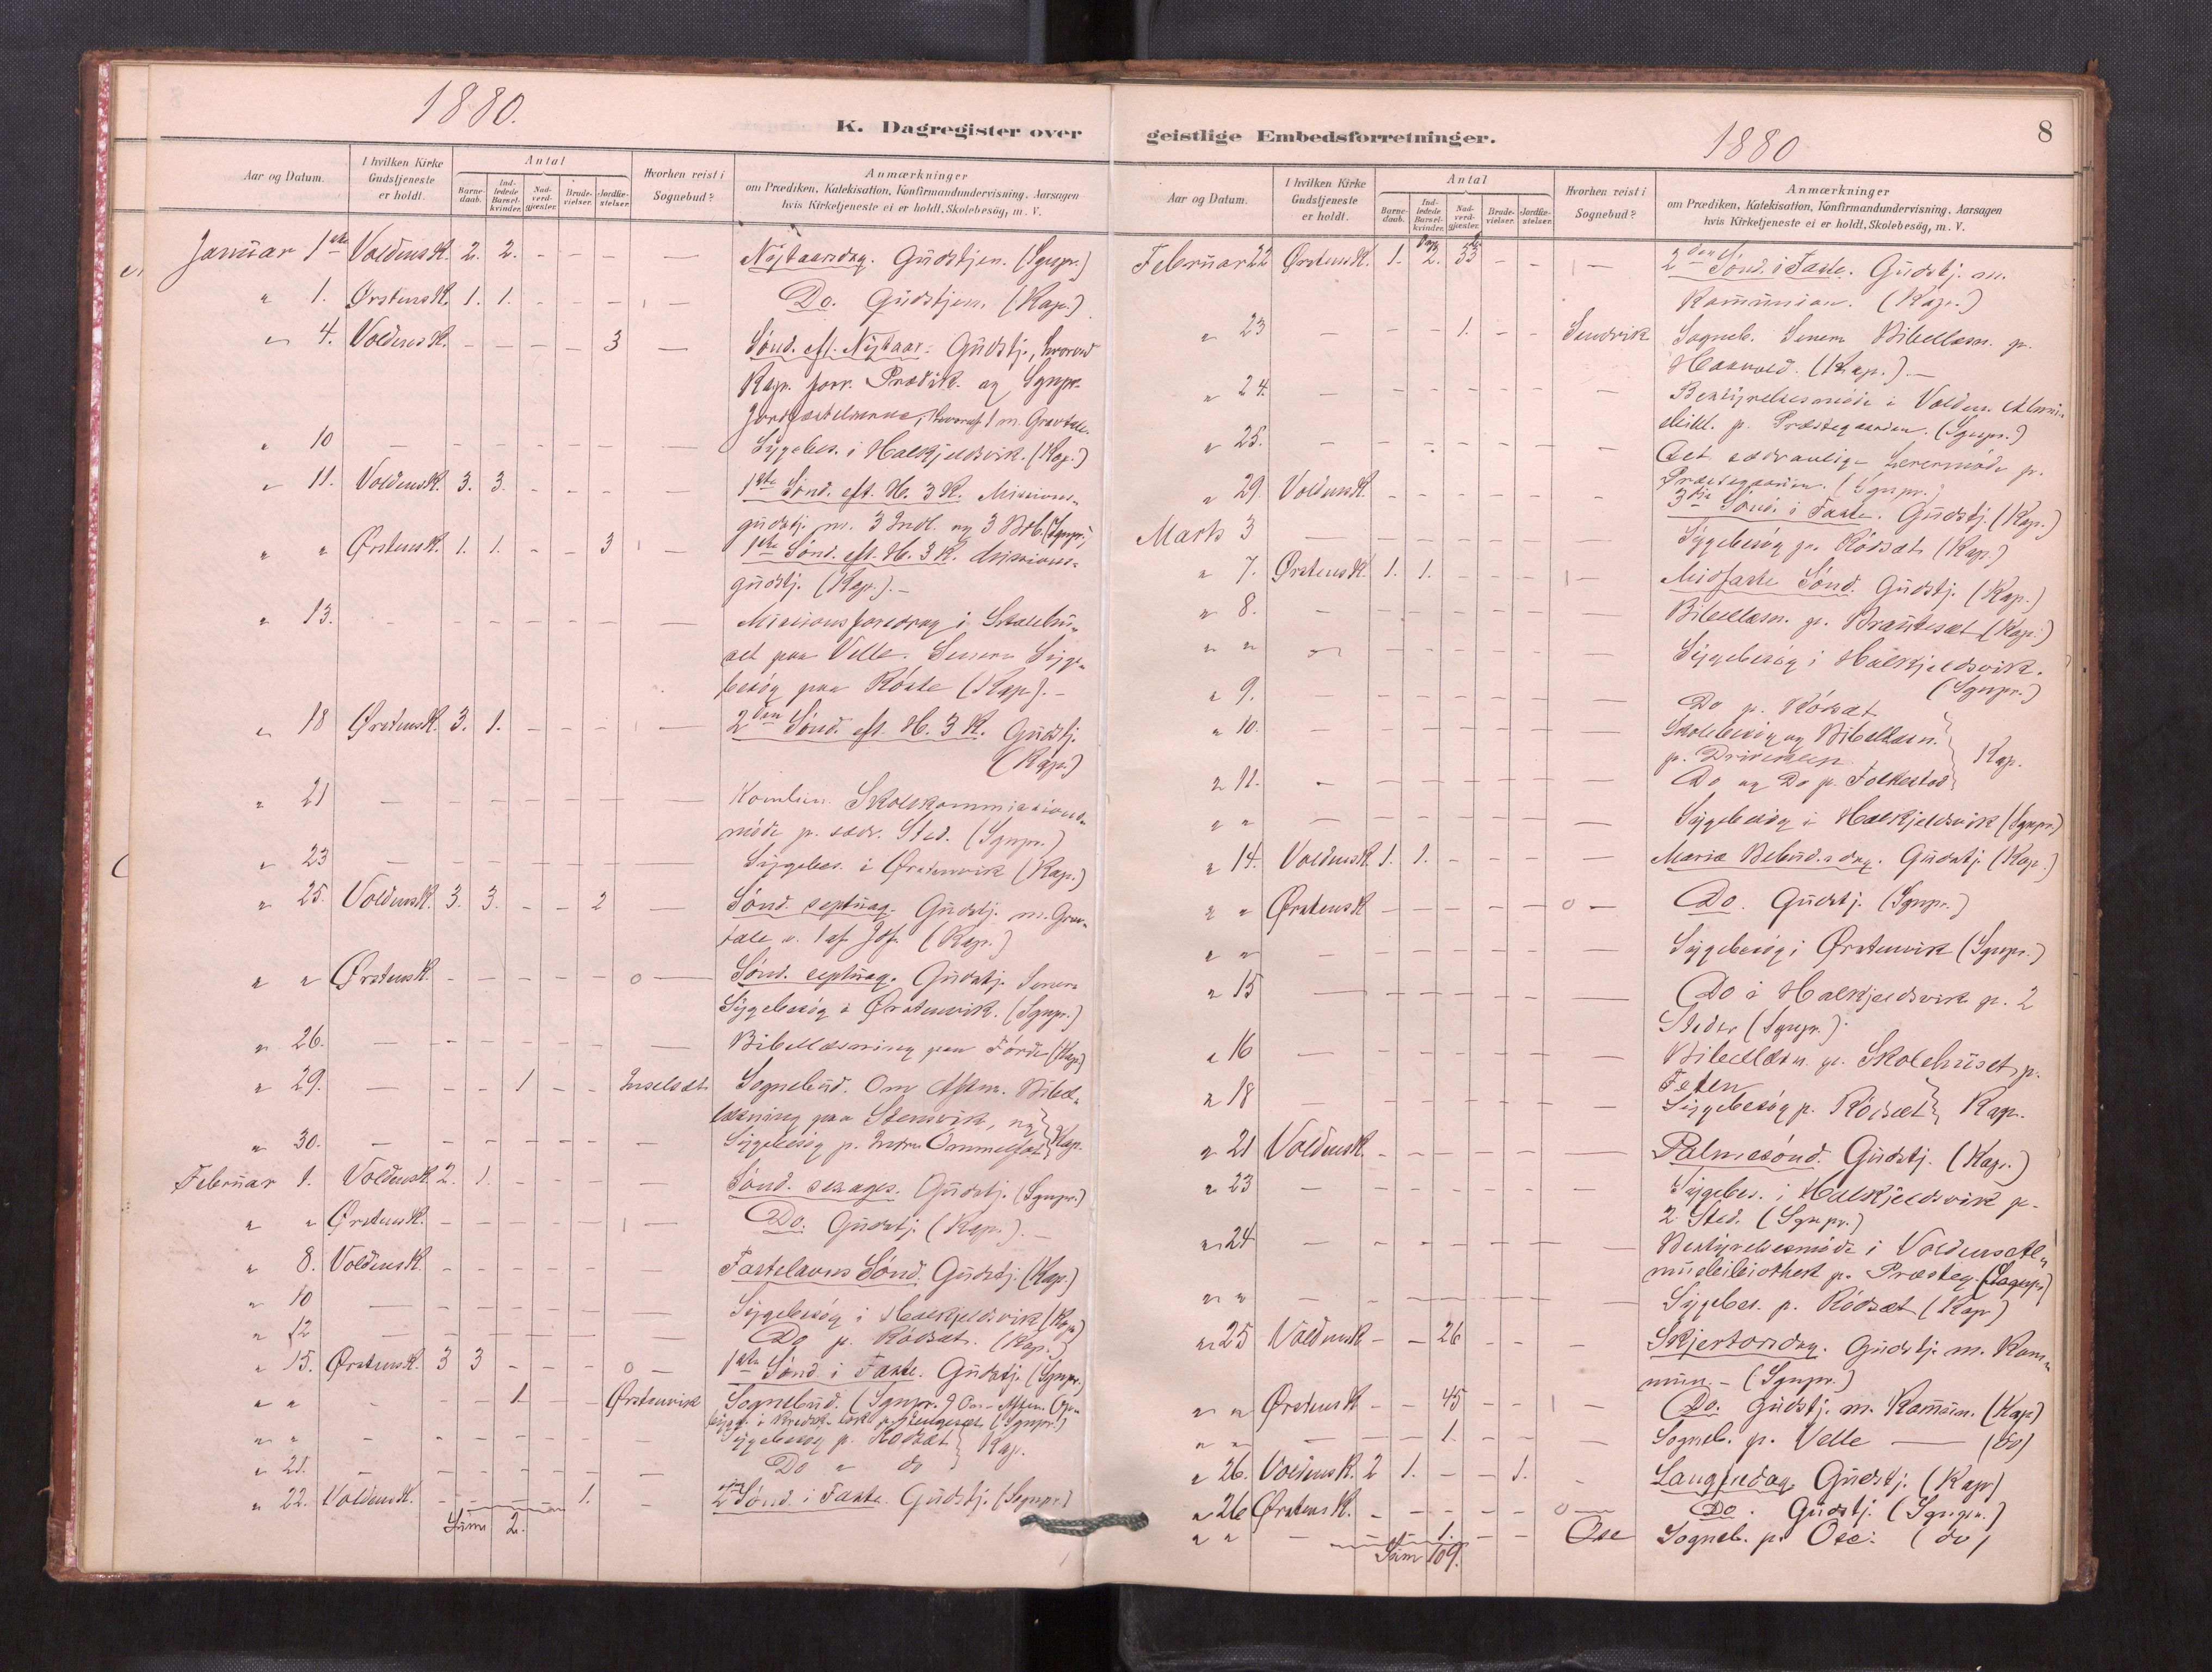 1880.
K. Dagregister over
Aar og Datum.
I hvilken Kirke Gudstjeneste er holdt.
Antal
Barne-daab.
Ind-ledede Barsel-kvinder.
Nad-verd-gjæster.
Brude-vielser.
Jordfæ-stelser.
Hvorhen reist i Sognebud?
Anmærkninger
om Prædiken, Katekisation, Konfirmandundervisning. Aarsagen
hvis Kirketjeneste ei er holdt, Skolebesög, m. V.
Januar 1ste Voldens K. 2. 2. - - - — Nytaarsdag. Gudstjen. (Sgnpr.)
" 1. Ørstens K. 1. 1. - - - — Do. Gudstjen. (Kap.)
" 4. Voldens K. - - - - 3 — Sönd. eft. Nytaar: Gudstj., hvorved
Kap. forr. Prædik. og Sgnpr.
Jordfæstelserne, hvoraf 1 m. Gravtale.
" 10 — - - - - - — Sygebes. i Halkjeldsvik. (Kap.)
" 11. Voldens K. 3. 3. - - - — 1ste Sönd. eft. H. 3 K. Missions-
gudstj. m. 3 Indl. og 3 Brb. (Sgnpr.)
" " Ørstens K. 1. 1. - - 3 — 1ste Sönd. eft. H. 3 K. Missions-
gudstj. (Kap.).-
" 13. - - - - - - — Missionsforedrag i Skolehu-
set paa Velle. Senere Syge-
besög paa Røste (Kap.).-
" 18 Ørstens K. 3. 1. - - - — 2den Sönd. eft. H. 3 K. Gudstj.
(Kap.)
" 21 — - - - - - — Kombin. Skolekommissions-
möde p. sædv. Sted. (Sgnpr.)
" 23 — - - - - - — Sygebes. i Ørstenvik (Kap.)
" 25. Voldens K. 3. 3. - - 2 — Sönd. septuag. Gudstj. m. Grav-
tale v. 1 af Jdf. (Kap.)
" " Ørstens K. - - - - - o — Sönd. septuag. Gudstj. Senere
Sygebesög i Ørstenvik. (Sgnpr.)
" 26. — - - - - - — Bibellæsning paa Förde (Kap)
" 29. — - - 1 - - Inselset Sognebud. Om Aftnen. Bibel-
læsning paa Stensvik, og
" 30. — - - - - - — Sygebesög p. Indre Ommelfot } Kap.
Februar 1. Voldens K. 2. 1. - - - — Sönd. sexages. Gudstj. (Sgnpr.)
" " Ørstens K. - - - - - — Do. Gudstj. (Kap.).-
" 8. Voldens K. - - - - - — Fastelavns Sönd. Gudstj. (Kap.)
" 10 — - - - - - — Sygebesög i Halkjeldsvik (Kap)
" 12 — - - - - - — Do p. Rödsæt. (Kap.)
" 15. Ørstens K. 3 3 - - - o — 1ste Sönd. i Faste. Gudstj. (Sgnpr.)
" " - - - 1. - - Ørstenvik Sognebud. (Sgnpr.)
" " - - - - - - — Sygebesög p. Rodsæt } Kap.
" 21. - - - - - - — Do " do
" 22. Voldens K. - - - 1. - - 2den Sönd. i Faste. Gudstj. (Sgnpr.)
Sum 2.
geistlige Embedsforretninger.
1880
8
Aar og Datum.
I hvilken Kirke Gudstjeneste er holdt.
Antal
Barne-daab.
Ind-ledede Barsel-kvinder.
Nad-verd-gjæster.
Brude-vielser.
Jordfæ-stelser.
Hvorhen reist i Sognebud?
Anmærkninger
om Prædiken, Katekisation, Konfirmandundervisning, Aarsagen
hvis Kirketjeneste ei er holdt, Skolebesög, m. V.
Februar 22 Ørstens K. 1. 2. 33 - - — 2den Sönd. i Faste. Gudstj. m.
Kommunion. (Kap.)
" 23 — - - 1. - - Sundvik Sogneb. Senere Bibellæsn. p.
Haavold. (Kap.).-
" 24. — - - - - - — Bestyrelsesmöde i Voldens Almue-
bibl. p. Præstegaarden. (Sgnpr.)
" 25. — - - - - - — Det sædvanlige Lærermöde p.
Præstegaarden. (Sgnpr.)
" 29. Voldens K. - - - - - - 3die Sönd. i Faste. Gudstj. (Kap.)
Marts 3 — - - - - - — Sygebesög p. Rödsæt (Kap.)
" 7. Ørstens K. 1. 1. - - - — Midfaste Sönd. Gudstj. (Kap.)
" 8. - - - - - - — Bibellæsn. p. Brautesæt (Kap.)
" " " - - - - - — Sygebesög i Halkjeldsvik.
(Sgnpr.)
" 9. — - - - - - — Do p. Rödsæt
" 10. — - - - - - — Skolebesög og Bibellæsn.
p. Driveklep } Kap.
" 11. - - - - - - — Do og Do p. Folkestad
" " — - - - - - — Sygebesög i Halkjeldsvik (Sgnpr.)
" 14. Voldens K. 1. 1. - - - — Mariæ Bebud.s dag. Gudstj. (Kap.)
" " Ørstens K - - - - - o — Do. Gudstj. (Sgnpr.)
" " — - - - - - — Sygebesög i Ørstenvik (Sgnpr.)
" 15 — - - - - - — Do i Halkjeldsvik p. 2
Steder (Sgnpr.)
" 16 — - - - - - — Bibellæsn. p. Skolehuset p.
Feten
" 18 — - - - - - — Sygebesög p. Rödsæt } Kap.
" 21 Voldens K. - - - - - — Palmesönd. Gudstj. (Kap.)
" 23 — - - - - - — Sygebes. i Halkjeldsvik p.
2 Sted. (Sgnpr.)
" 24 — - - - - - — Bestyrelsesmöde i Voldens Al-
muebibiothek p. Præsteg. (Sognpr)
" " — - - - - - — Sygebes. p. Rödsæt (Kap)
" 25 Voldens K - - 26 - - - Skjertorsdag. Gudstj. m. Kom-
mun. - (Sgnpr.)
" " Ørstens K - - 45 - - — Do. Gudstj. m. Kommun. (Kap)
" " — - - 1. - - — Sogneb. p. Velle — (do)
" 26. Voldens K. 2 1. - - 1. - Langfredag Gudstj. (Kap)
" 26 Ørstens K. - - - - - o — Do. Gudstj. (Sgnpr.)
" " — - - 1. - - Ose Sogneb. p. Ose. (do)
Sum 109.